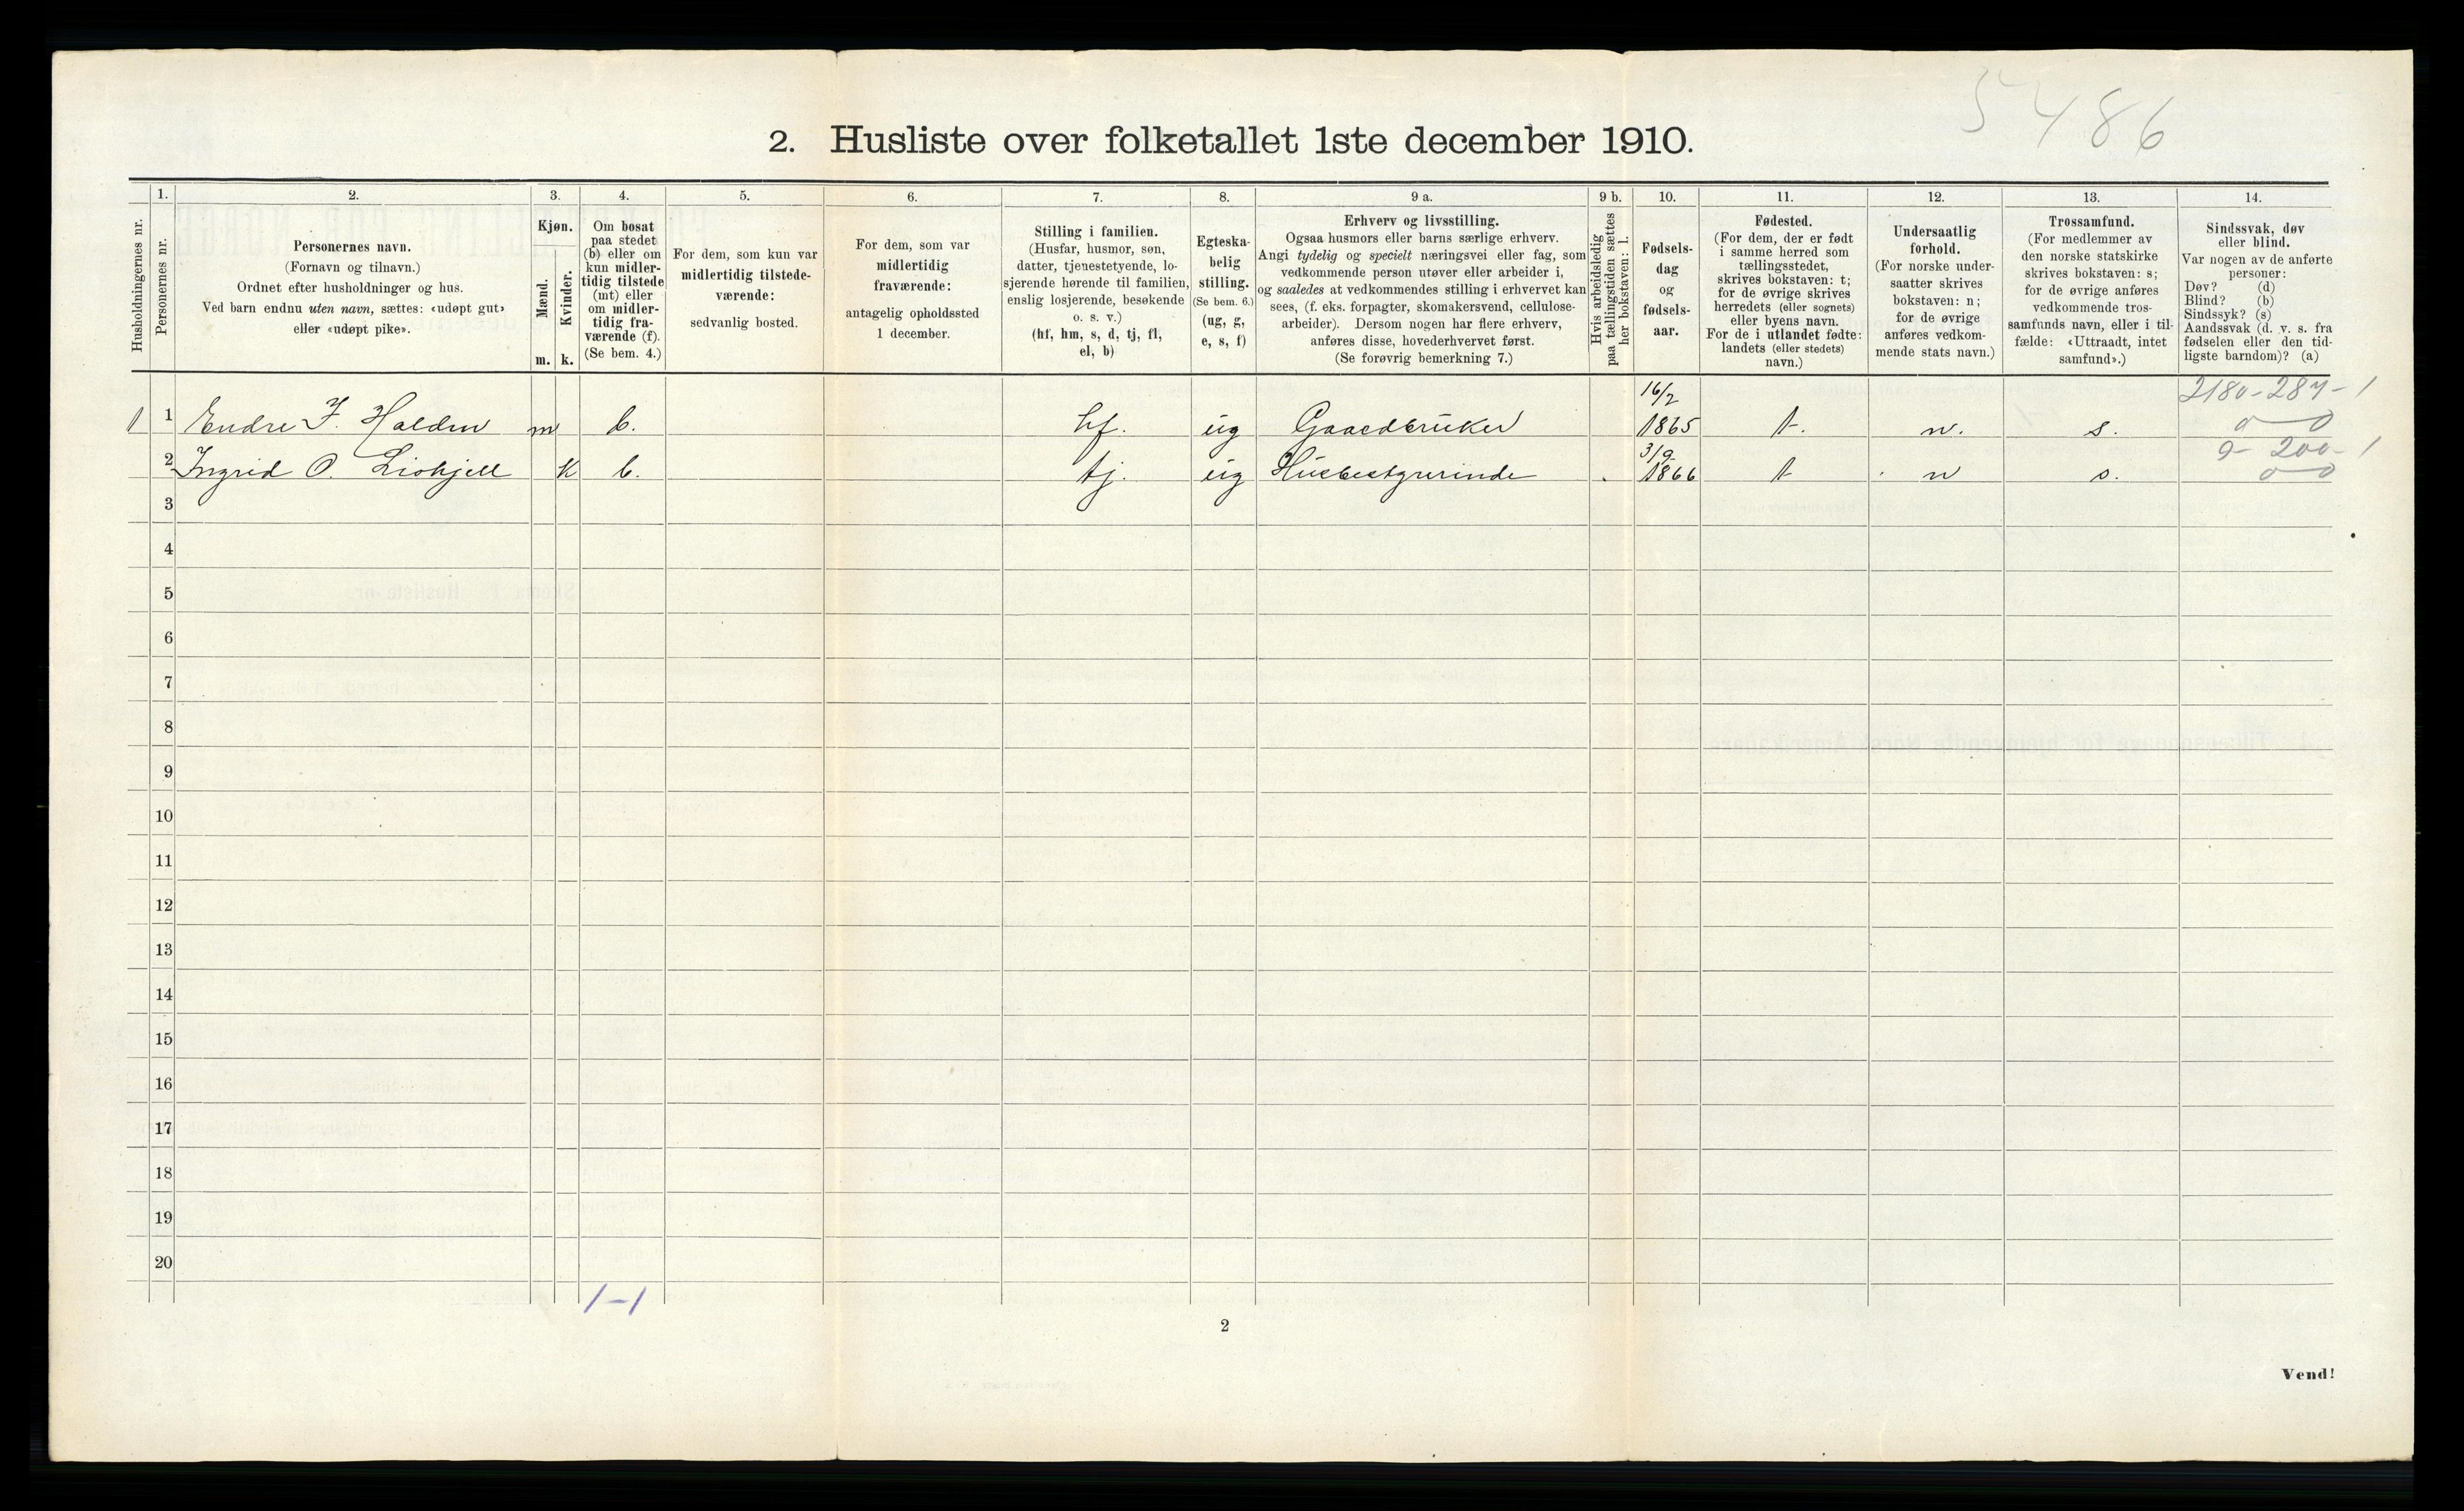 5486
2. Husliste over folketallet 1ste december 1910.
Husholdningernes nr.
1.
Personernes nr.
2.
Personernes navn.
(Fornavn og tilnavn.)
Ordnet efter husholdninger og hus.
Ved barn endnu uten navn, sættes: «udøpt gut»
eller «udøpt pike».
3.
Kjøn.
Mænd.
Kvinder.
m. k.
4.
Om bosat
paa stedet
(b) eller om
kun midler-
tidig tilstede
(mt) eller
om midler-
tidig fra-
værende (f).
(Se bem. 4.)
5.
For dem, som kun var
midlertidig tilstede-
værende:
sedvanlig bosted.
6.
For dem, som var
midlertidig
fraværende:
antagelig opholdssted
1 december.
7.
Stilling i familien.
(Husfar, husmor, søn,
datter, tjenestetyende, lo-
sjerende hørende til familien,
enslig losjerende, besøkende
o. s. v.)
(hf, hm, s, d, tj, fl,
el, b)
8.
Egteska-
belig
stilling.
(Se bem. 6.)
(ug, g,
e, s, f)
9 a.
Erhverv og livsstilling.
Ogsaa husmors eller barns særlige erhverv.
Angi tydelig og specielt næringsvei eller fag, som
vedkommende person utøver eller arbeider i,
og saaledes at vedkommendes stilling i erhvervet kan
sees, (f. eks. forpagter, skomakersvend, cellulose-
arbeider). Dersom nogen har flere erhverv,
anføres disse, hovederhvervet først.
(Se forøvrig bemerkning 7.)
9 b.
Hvis arbeidsledig
paa tællingstiden sættes
her bokstaven: l.
10.
Fødsels-
dag
og
fødsels-
aar.
11.
Fødested.
(For dem, der er født
i samme herred som
tællingsstedet,
skrives bokstaven: t;
for de øvrige skrives
herredets (eller sognets)
eller byens navn.
For de i utlandet fødte:
landets (eller stedets)
navn.)
12.
Undersaatlig
forhold.
(For norske under-
saatter skrives
bokstaven: n;
for de øvrige
anføres vedkom-
mende stats navn.)
13.
Trossamfund.
(For medlemmer av
den norske statskirke
skrives bokstaven: s;
for de øvrige anføres
vedkommende tros-
samfunds navn, eller i til-
fælde: «Uttraadt, intet
samfund».)
14.
Sindssvak, døv
eller blind.
Var nogen av de anførte
personer:
Døv? (d)
Blind? (b)
Sindssyk? (s)
Aandssvak (d. v. s. fra
fødselen eller den tid-
ligste barndom)? (a)
16/2 2180-287-1
1 1 Endre J. Halden m b. hf. ug Gaardbruker 1865 t. n. s. 0 0
3/9 9-200-1
2 Ingrid O. Liohjell k b. tj. ug Husbestyrerinde 1866 t n s. 0 0
3
4
5
6
7
8
9
10
11
12
13
14
15
16
17
18
19
20
1-1
2
Vend!